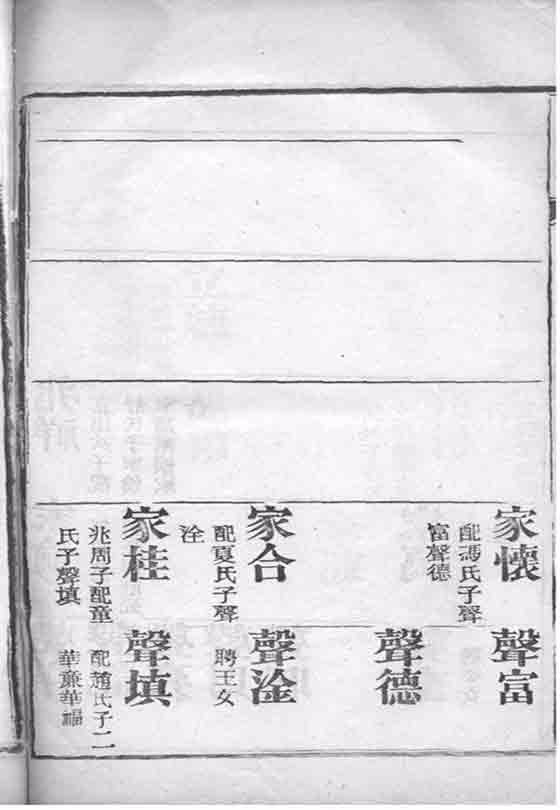 家懷
配馮氏子聲
富聲德
家合
配夏氏子聲
淦
家桂
兆周子配童
氏子聲填
聲富
聲德
聲淦
聘王女
聲填
配趙氏子二
華廉華福